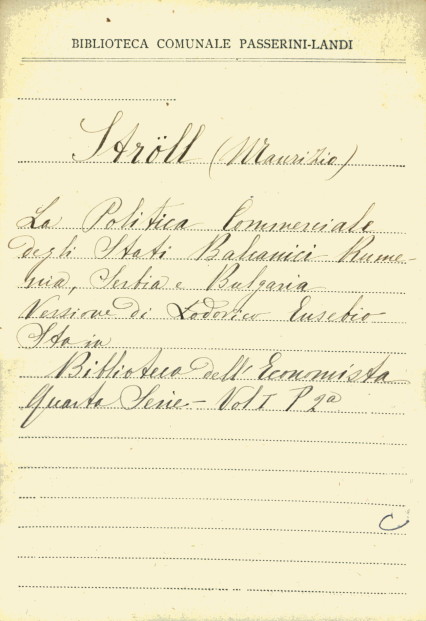 BIBLIOTECA COMUNALE PASSERINI-LANDI
Ströll (Maurizio)
La Politica Commerciale
degli Stati Balcanici Rume-
nia, Serbia e Bulgaria
Versione di Lodovico Eusebio
Sta in
Biblioteca dell'Economista
Quarta Serie - Vol I P 2a
C